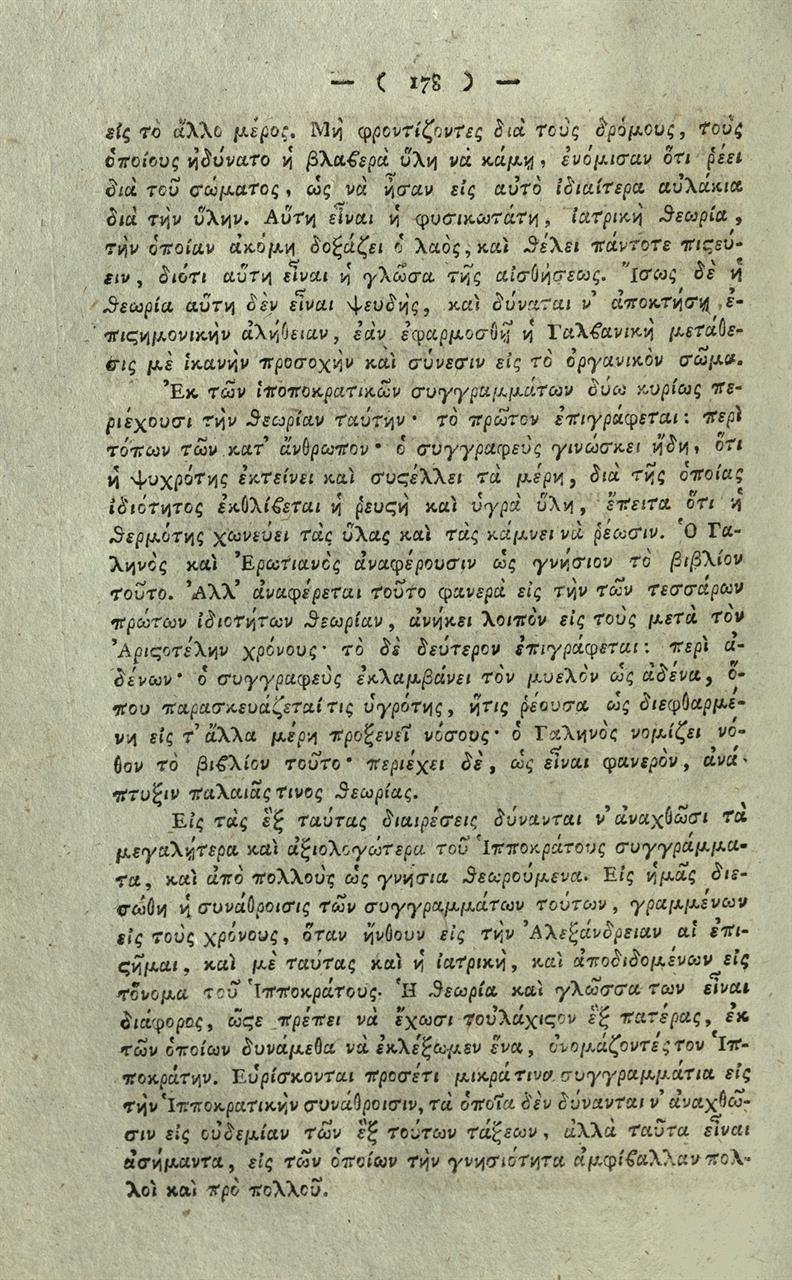 — ( 178 ) —
εἰς τὸ ἄλλο μέρος. Μὴ φροντίζοντες διὰ τοὺς δρόμους, τοὺς
ὁποίους ἠδύνατο ἡ βλαβερὰ ὕλη νὰ κάμῃ, ἐνόμισαν ὅτι ῥέει
διὰ τοῦ σώματος, ὡς νὰ ἦσαν εἰς αὐτὸ ἰδιαίτερα αὐλάκια
διὰ τὴν ὕλην. Αὕτη εἶναι ἡ φυσικωτάτη, ἰατρικὴ θεωρία,
τὴν ὁποίαν ἀκόμη δοξάζει ὁ λαὸς, καὶ θέλει πάντοτε πιϛεύ-
ειν, διότι αὕτη εἶναι ἡ γλῶσα τῆς αἰσθήσεως. Ἴσως δὲ ἡ
θεωρία αὕτη δὲν εἶναι ψευδὴς, καὶ δύναται ν' ἀποκτήσῃ ἐ-
πιϛημονικὴν ἀλήθειαν, ἐὰν ἐφαρμοσθῇ ἡ Γαλβανικὴ μετάθε-
σις μὲ ἱκανὴν προσοχὴν καὶ σύνεσιν εἰς τὸ ὀργανικὸν σῶμα.
Ἐκ τῶν ἱποποκρατικῶν συγγραμμάτων δύω κυρίως πε-
ριέχουσι τὴν θεωρίαν ταύτην· τὸ πρῶτον ἐπιγράφεται: περὶ
τόπων τῶν κατ' ἄνθρωπον· ὁ συγγραφεὺς γινώσκει ἤδη, ὅτι
ἡ ψυχρότης ἐκτείνει καὶ συϛέλλει τὰ μέρη, διὰ τῆς ὁποίας
ἰδιότητος ἐκθλίβεται ἡ ῥευϛὴ καὶ ὑγρὰ ὕλη, ἔπειτα ὅτι ἡ
θερμότης χωνεύει τὰς ὕλας καὶ τὰς κάμνει νὰ ῥέωσιν. Ὁ Γα-
ληνὸς καὶ Ἐρωτιανὸς ἀναφέρουσιν ὡς γνήσιον τὸ βιβλίον
τοῦτο. Ἀλλ' ἀναφέρεται τοῦτο φανερὰ εἰς τὴν τῶν τεσσάρων
πρώτων ἰδιοτήτων θεωρίαν, ἀνήκει λοιπὸν εἰς τοὺς μετὰ τὸν
Ἀριϛοτέλην χρόνους· τὸ δὲ δεύτερον ἐπιγράφεται: περὶ ἀ-
δένων· ὁ συγγραφεὺς ἐκλαμβάνει τὸν μυελὸν ὡς ἀδένα, ὅ-
που παρασκευάζεταί τις ὑγρότης, ἥτις ῥέουσα ὡς διεφθαρμέ-
νη εἰς τ' ἄλλα μέρη προξενεῖ νόσους· ὁ Γαληνὸς νομίζει νό-
θον τὸ βιβλίον τοῦτο· περιέχει δὲ, ὡς εἶναι φανερὸν, ἀνά-
πτυξιν παλαιᾶς τινος θεωρίας.
Εἰς τὰς ἓξ ταύτας διαιρέσεις δύνανται ν' ἀναχθῶσι τὰ
μεγαλήτερα καὶ ἀξιολογώτερα τοῦ Ἱπποκράτους συγγράμμα-
τα, καὶ ἀπὸ πολλοὺς ὡς γνήσια θεωρούμενα. Εἰς ἡμᾶς διε-
σώθη ἡ συνάθροισις τῶν συγγραμμάτων τούτων, γραμμένων
εἰς τοὺς χρόνους, ὅταν ἤνθουν εἰς τὴν Ἀλεξάνδρειαν αἱ ἐπι-
ϛῆμαι, καὶ μὲ ταύτας καὶ ἡ ἰατρικὴ, καὶ ἀποδιδομένων εἰς
τὄνομα τοῦ Ἱπποκράτους. Ἡ θεωρία καὶ γλῶσσα των εἶναι
διάφορος, ὥϛε πρέπει νὰ ἔχωσι τοὐλάχιϛον ἓξ πατέρας, ἐκ
τῶν ὁποίων δυνάμεθα νὰ ἐκλέξωμεν ἕνα, ὀνομάζοντές τον Ἱπ-
ποκράτην. Εὑρίσκονται προσέτι μικρά τινα συγγραμμάτια εἰς
τὴν Ἱπποκρατικὴν συνάθροισιν, τὰ ὁποῖα δὲν δύνανται ν' ἀναχθῶ-
σιν εἰς οὐδεμίαν τῶν ἓξ τούτων τάξεων, ἀλλὰ ταῦτα εἶναι
ἀσήμαντα, εἰς τῶν ὁποίων τὴν γνησιότητα ἀμφίβαλλαν πολ-
λοὶ καὶ πρὸ πολλοῦ.